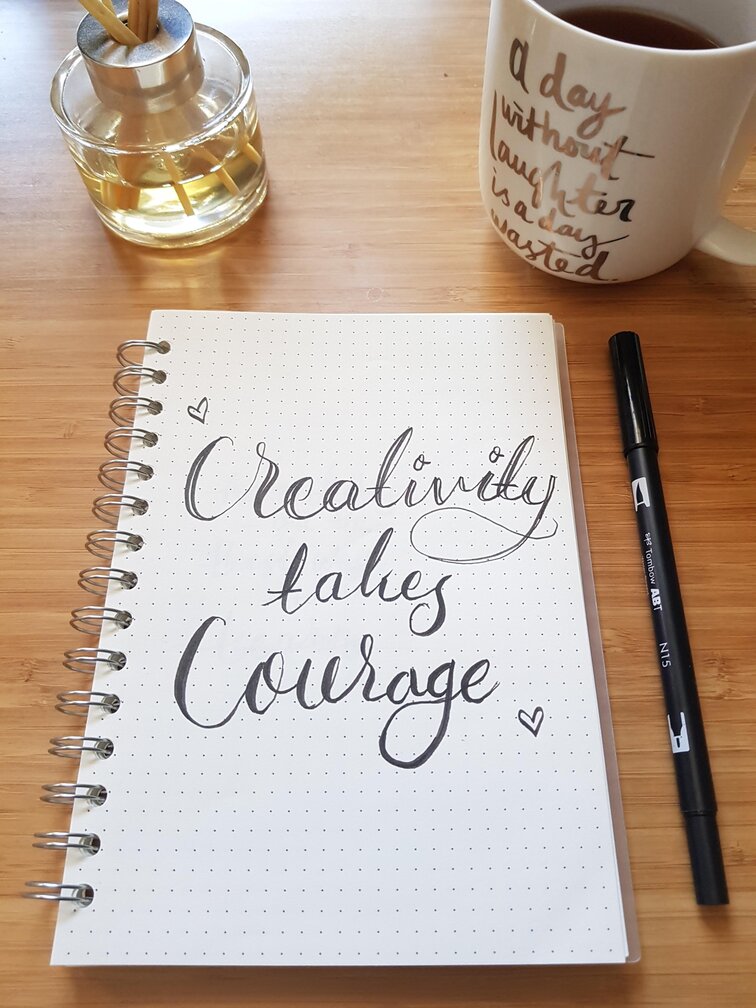 a day
without
laughter
is a day
wasted.
Creativity
takes
Courage
Tombow ABT
N15